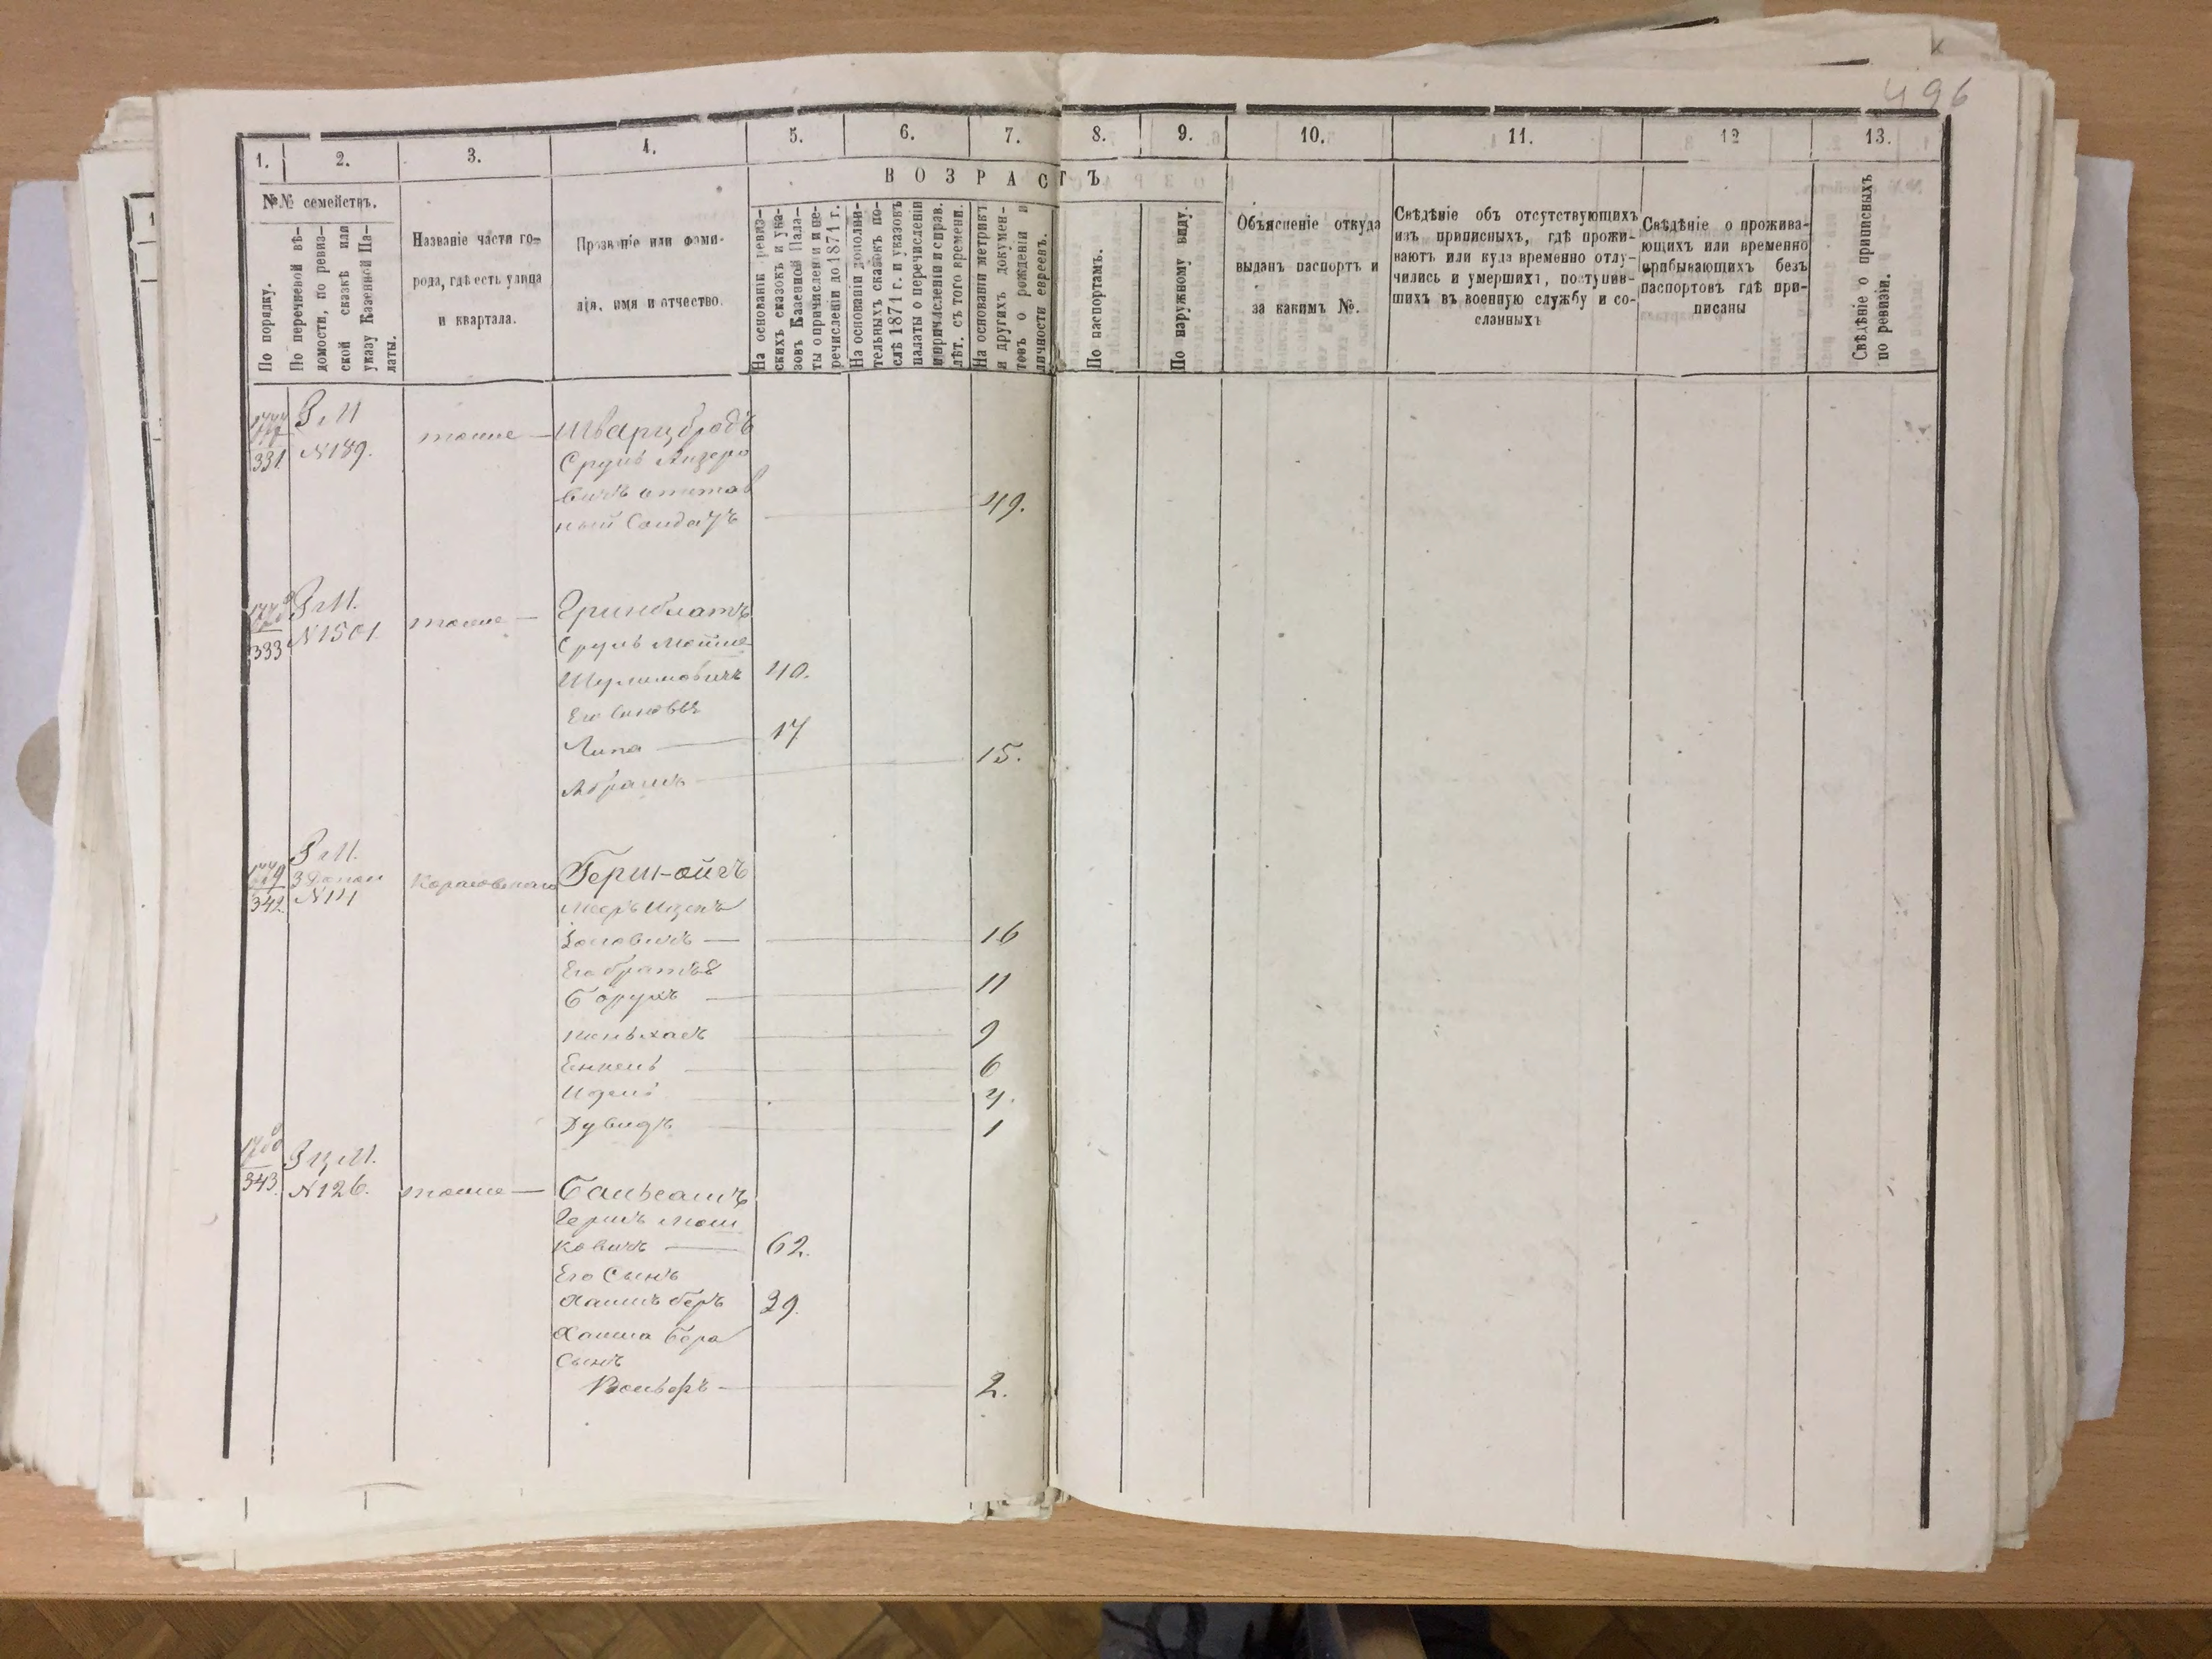 496
1. 2. 3. 4. 5. 6. 7. 8. 9. 10. 11. 12 13.
ВОЗРАСТЪ
№№ семействъ.
По порядку.
По перечневой вѣ-
домости, по ревиз-
ской сказкѣ или
указу Казенной Па-
латы.
Названіе части го-
рода, гдѣ есть улица
и квартала.
Прозваніе или фами-
лія, имя и отчество.
На основаніи ревиз-
скихъ сказокъ и ука-
зовъ Казенной Пала-
ты о причисленіи и пе-
речисленіи до 1871 г.
На основаніи дополни-
тельныхъ сказокъ по-
слѣ 1871 г. и указовъ
палаты о перечисленіи
и причисленіи и справ.
лѣт. съ того времени.
На основаніи метрикъ
и другихъ докумен-
товъ о рожденіи и
личности евреевъ.
По паспортамъ.
По наружному виду.
Объясненіе откуда
выданъ паспортъ и
за какимъ №.
Свѣдѣніе объ отсутствующихъ
изъ приписныхъ, гдѣ прожи-
ваютъ или куда временно отлу-
чились и умершихъ, поступив-
шихъ въ военную службу и со-
сланныхъ
Свѣдѣніе о прожива-
ющихъ или временно
прибывающихъ безъ
паспортовъ гдѣ при-
писаны
Свѣдѣніе о приписныхъ
по ревизіи.
331 N 189. тоже — Шварцбродъ
Сруль
вичъ отстав
ный Солдатъ 49.
333 N 1501 тоже — Гринблатъ
Сруль Мошко
Шулимовичъ 40.
Его сыновья
Липа — 17
Абрамъ — 15.
342 N 14 Гершойгъ
Мееръ Ицек
Іоновичъ — 16
Его братья
Борухъ — 11
Пеньхасъ 9
Енкель — 6
Идель 4.
Дувидъ 1
343. N 126. тоже — Бальсамъ
Гершъ Мош
ковичъ — 62.
Его Сынъ
Хаимъ Беръ 39.
Хаима Бера
Сынъ
Вольфъ — 2.